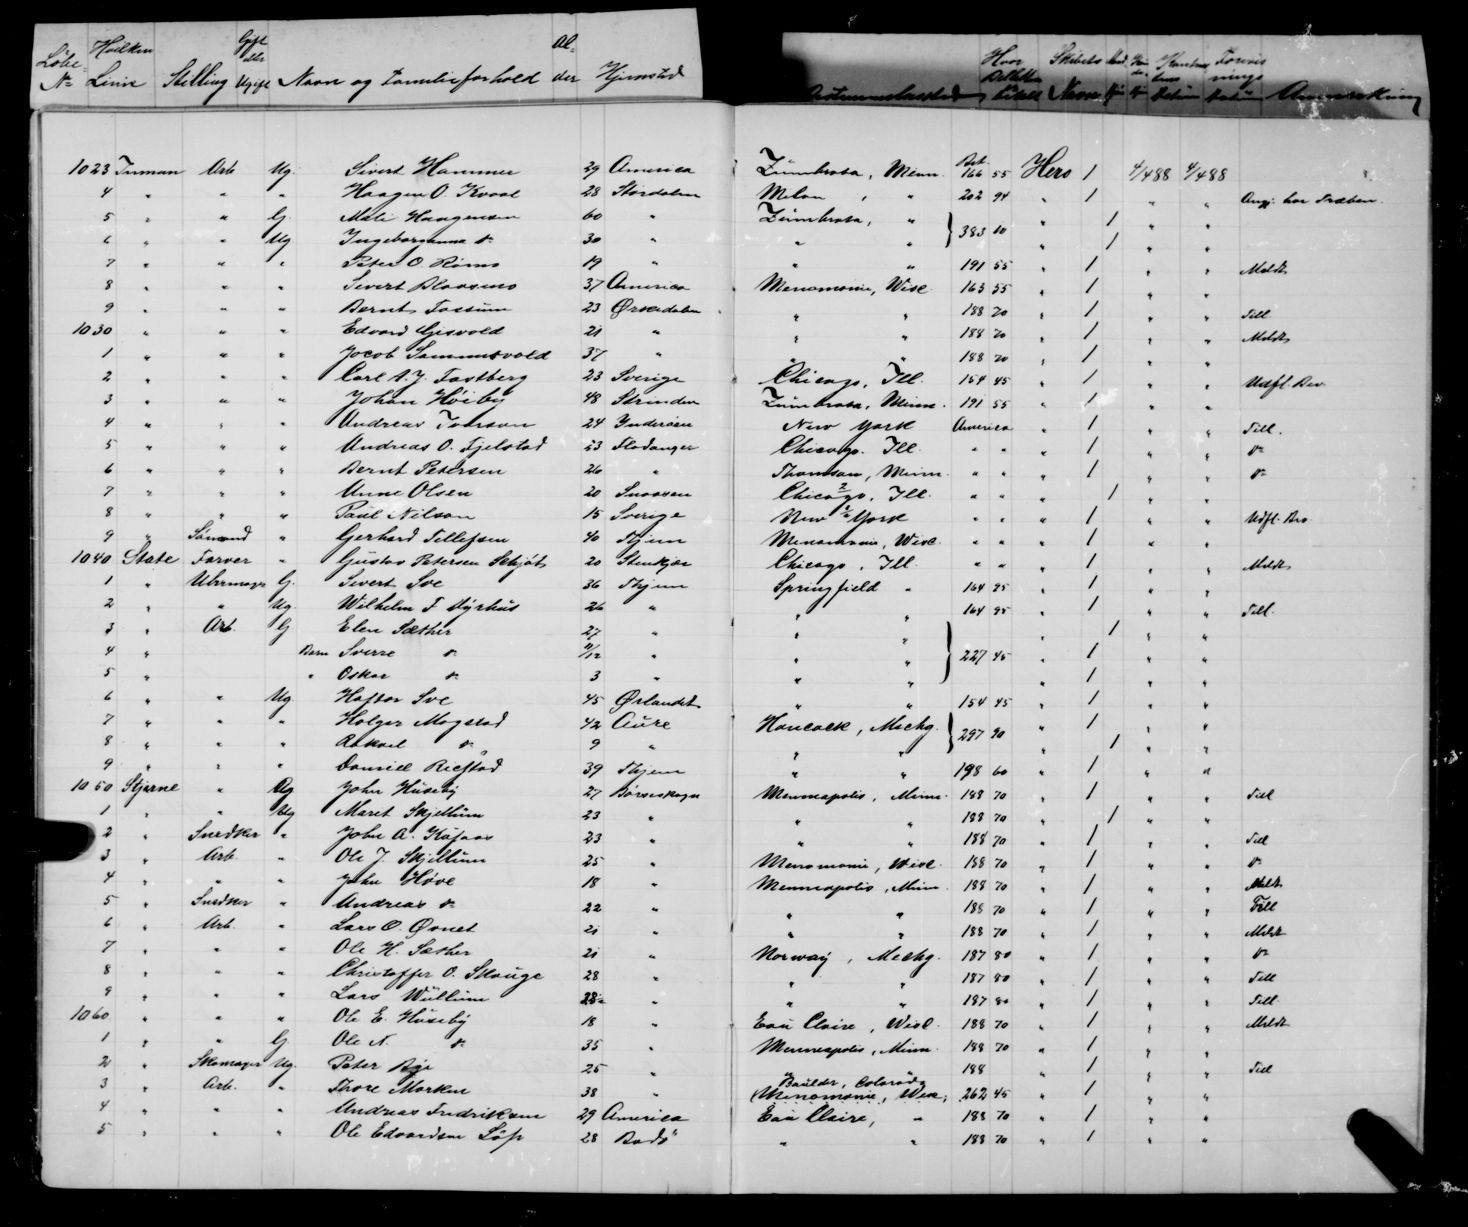 Löbe No Hvilken Linie Stilling Gift eller Ugift Navn og Familieforhold Al- der Hjemsted Hvor Betalt Billet Skibets Navn Anmærkning
1023 Inman Arb Ug. Sivert Hammer 29 America Zumbrota, Minn. Bet. 166 55 Hero 1 4/4 88 4/4 88
4 " " " Haagen O. Kvaal 28 Stordalen Milan, " 202 94 " 1 " " Angj. har Præben.
5 " " G. Meli Haagensen 60 " Zumbrota, " 383 10 " 1 " "
6 " " Ug Ingeborganna do 30 " " " " 1 " "
7 " " " Peter O. Römo 19 " " " 191 55 " 1 " " Meldt
8 " " " Sivert Blaasmo 37 America Menomonie, Wisc 163 55 " 1 " "
9 " " " Bernt Fossum 23 Ørkedalen " " 188 70 " 1 " " Till
1030 " " " Edvard Gisvold 21 " " " 188 70 " 1 " " Meldt
1 " " " Jocob Sammesvold 37 " " " 188 70 " 1 " "
2 " " " Carl A. J. Fastberg 23 Sverige Chicago, Ill. 154 45 " 1 " " Udfl. Bev
3 " " " Johan Höiby 48 Strinden Zumbrota, Minn. 191 55 " 1 " "
4 " " " Andreas Iverson 24 Inderøen New York America " 1 " " Till.
5 " " " Andreas O. Fjelstad 23 Fladanger Chicago. Ill. " " " 1 " " do
6 " " " Bernt Petersen 26 " Thomson, Minn. " " " 1 " " do
7 " " " Anne Olsen 20 Snaasen Chicago, Ill. " " " 1 " "
8 " " " Paul Nilson 15 Sverige New York " " " 1 " " Udfl. Bev
9 " Sömand " Gerhard Tellefsen 40 Thjem Menomonie, Wisc. " " " 1 " "
1040 State Farver " Gustav Petersen Schjöt 20 Stenkjær Chicago, Ill. " " " 1 " " Meldt
1 " Uhrmager G. Sivert Sve 36 Thjem Springfield " 164 95 " 1 " "
2 " " Ug. Wilhelm F Myrhus 26 " " " 164 95 " 1 " " Till.
3 " Arb. G Elen Sæther 27 " " " 227 45 " 1 " "
4 " Barn Sverre do 11/12 " " " " 1 " "
5 " " Oskar do 3 " " " " 1 " "
6 " " Ug Haftor Sve 45 Ørlandet " " 154 45 " 1 " "
7 " " " Holger Mogstad 42 Aure Hancock, Michg. 297 90 " 1 " "
8 " " " Rakael do 9 " " " " 1 " "
9 " " " Daniel Riestad 39 Thjem " " 198 60 " 1 " "
1050 Stjerne " Ug John Huseby 27 Börseskogn Minneapolis, Minn. 188 70 " 1 " " Till
1 " " Ug Marit Skjellum 23 " " " 188 70 " 1 " "
2 " Snedker " John A. Kufaas 23 " " " 188 70 " 1 " " Till
3 " Arb. " Ole J. Skjellum 25 " Menomonie, Wisc. 188 70 " 1 " " do
4 " " " John Höve 18 " Minneapolis, Minn. 188 70 " 1 " " Meldt
5 " Snedker " Andreas do 22 " " " 188 70 " 1 " " Till
6 " Arb. " Lars O. Øvnet 21 " " " 188 70 " 1 " " Meldt
7 " " " Ole H. Sæther 21 " Norway, Michg. 187 80 " 1 " " do
8 " " " Christoffer O. Skauge 28 " " " 187 80 " 1 " " Till
9 " " " Lars Wullum 23 " " " 187 80 " 1 " " Till.
1060 " " " Ole E. Huseby 18 " Eau Claire, Wisc. 188 70 " 1 " " Meldt
1 " " G Ole N. do 35 " Minneapolis, Minn. 188 70 " 1 " "
2 " Skomager Ug. Peter Bye 25 " " " 188 " 1 " " Till
3 " Arb. " Thore Morken 38 " Baulder, Colorado Menomonie, Wisc, 262 45 " 1 " "
4 " " " Andreas Fredriksen 29 America Eau Claire, " 188 70 " 1 " "
5 " " " Ole Edvardsen Löp 28 Bodö " " 188 70 " 1 " "